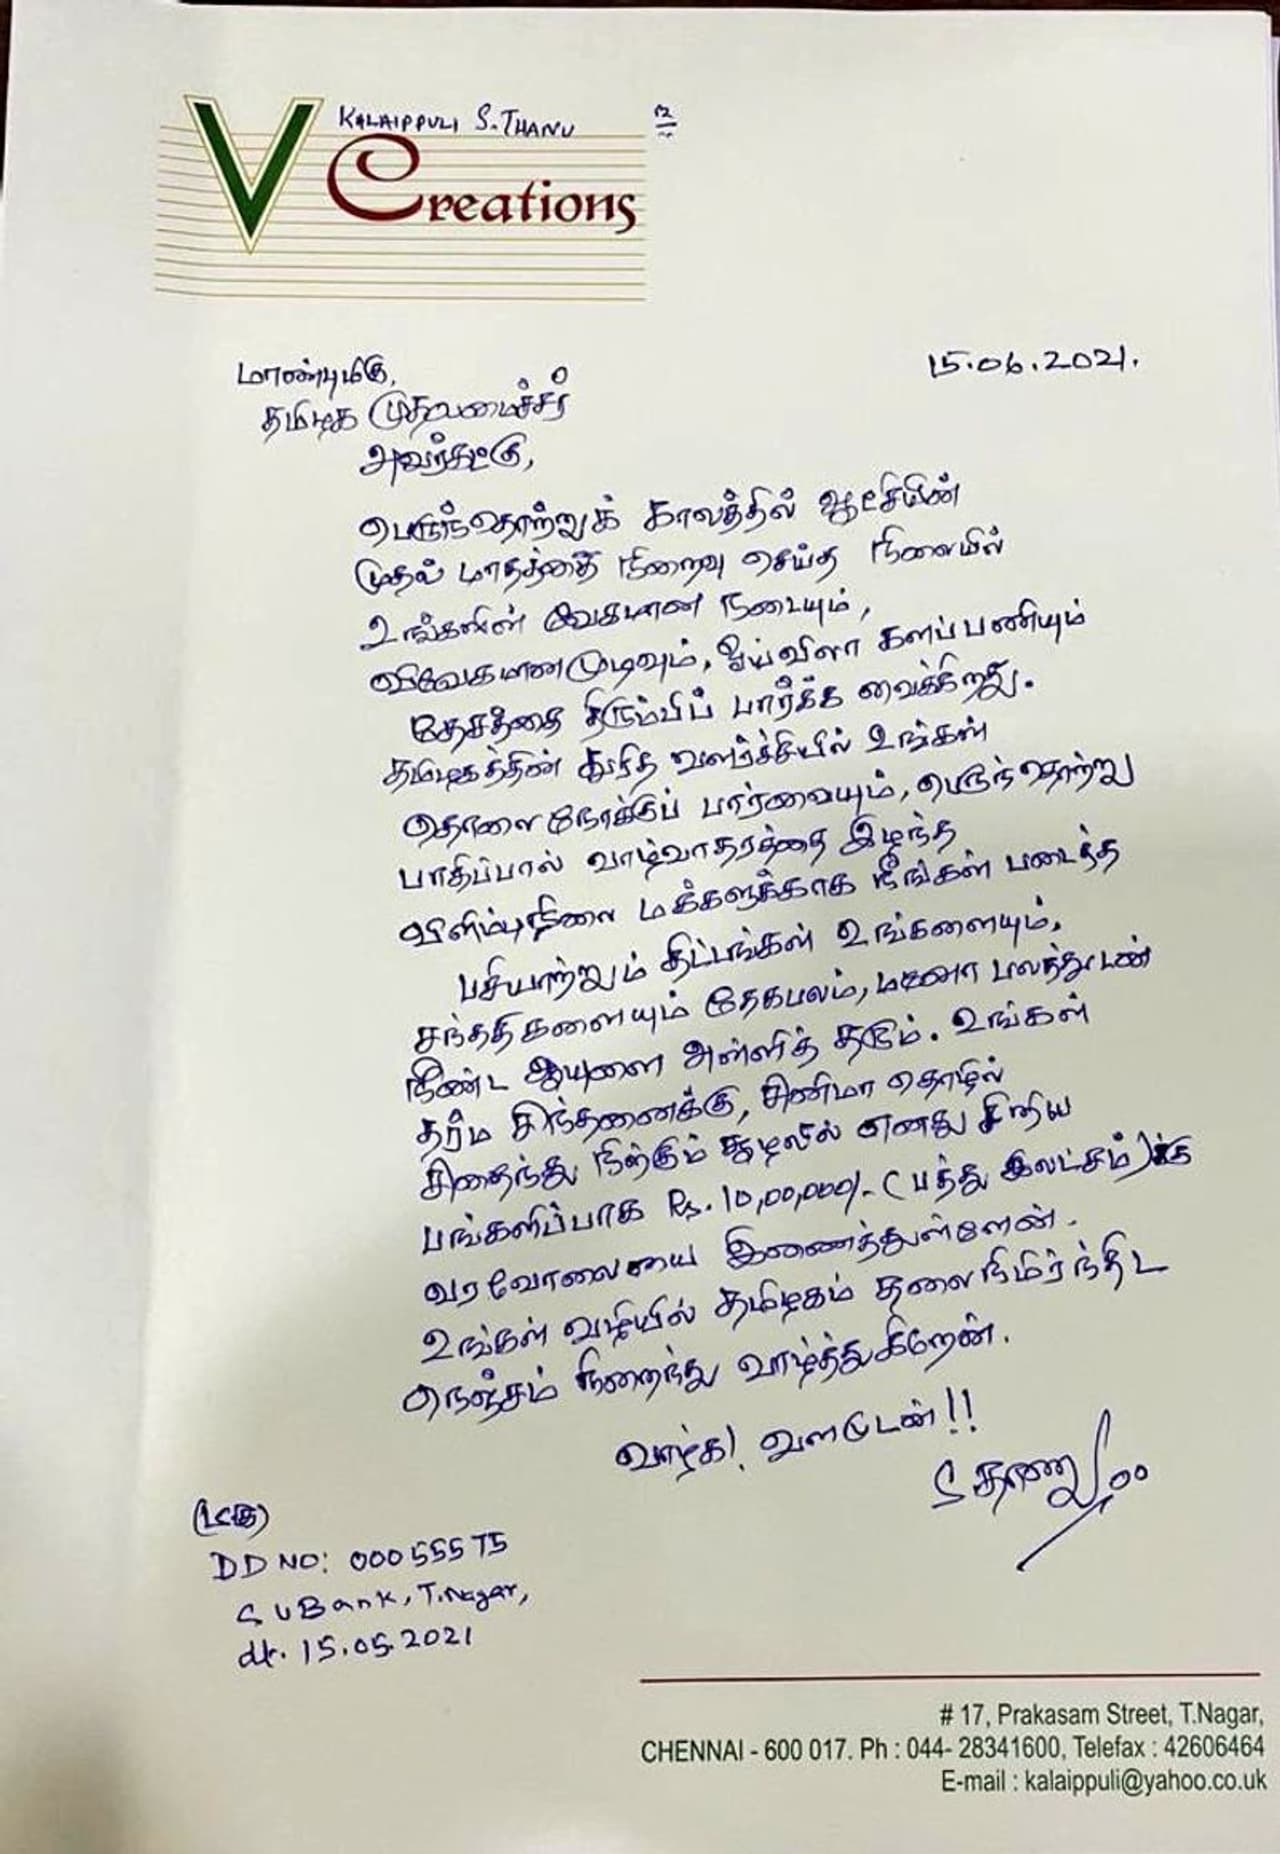 KALAIPPULI S. THANU
V Creations
15.06.2021.
மாண்புமிகு,
தமிழக முதலமைச்சர்
அவர்கட்கு,
பெருந்தொற்றுக் காலத்தில் ஆட்சியின்
முதல் மாதத்தை நிறைவு செய்த நிலையில்
உங்களின் வேகமான நடையும்,
விவேகமான முடிவும், ஓய்விலா களப்பணியும்
தேசத்தை திரும்பிப் பார்க்க வைக்கிறது.
தமிழகத்தின் துரித வளர்ச்சியில் உங்கள்
தொலைநோக்குப் பார்வையும், பெருந்தொற்று
பாதிப்பால் வாழ்வாதரத்தை இழந்த
விளிம்புநிலை மக்களுக்காக நீங்கள் படைத்த
பசியாற்றும் திட்டங்கள் உங்களையும்,
சந்ததிகளையும் தேகபலம், மனோ பலத்துடன்
நீண்ட ஆயுளை அள்ளித் தரும். உங்கள்
தர்ம சிந்தனைக்கு, சினிமா தொழில்
சிதைந்து நிற்கும் சூழலில் எனது சிறிய
பங்களிப்பாக Rs. 10,00,000/- (பத்து இலட்சம்)க்கு
வரவோலையை இணைத்துள்ளேன்.
உங்கள் வழியில் தமிழகம் தலைநிமிர்ந்திட
நெஞ்சம் நிறைந்து வாழ்த்துகிறேன்.
வாழ்க! வளமுடன்!!
S தாணு
DD NO: 000555 75
S U Bank, T.Nagar,
dt. 15.05.2021
# 17, Prakasam Street, T.Nagar,
CHENNAI - 600 017. Ph : 044- 28341600, Telefax : 42606464
E-mail : kalaippuli@yahoo.co.uk